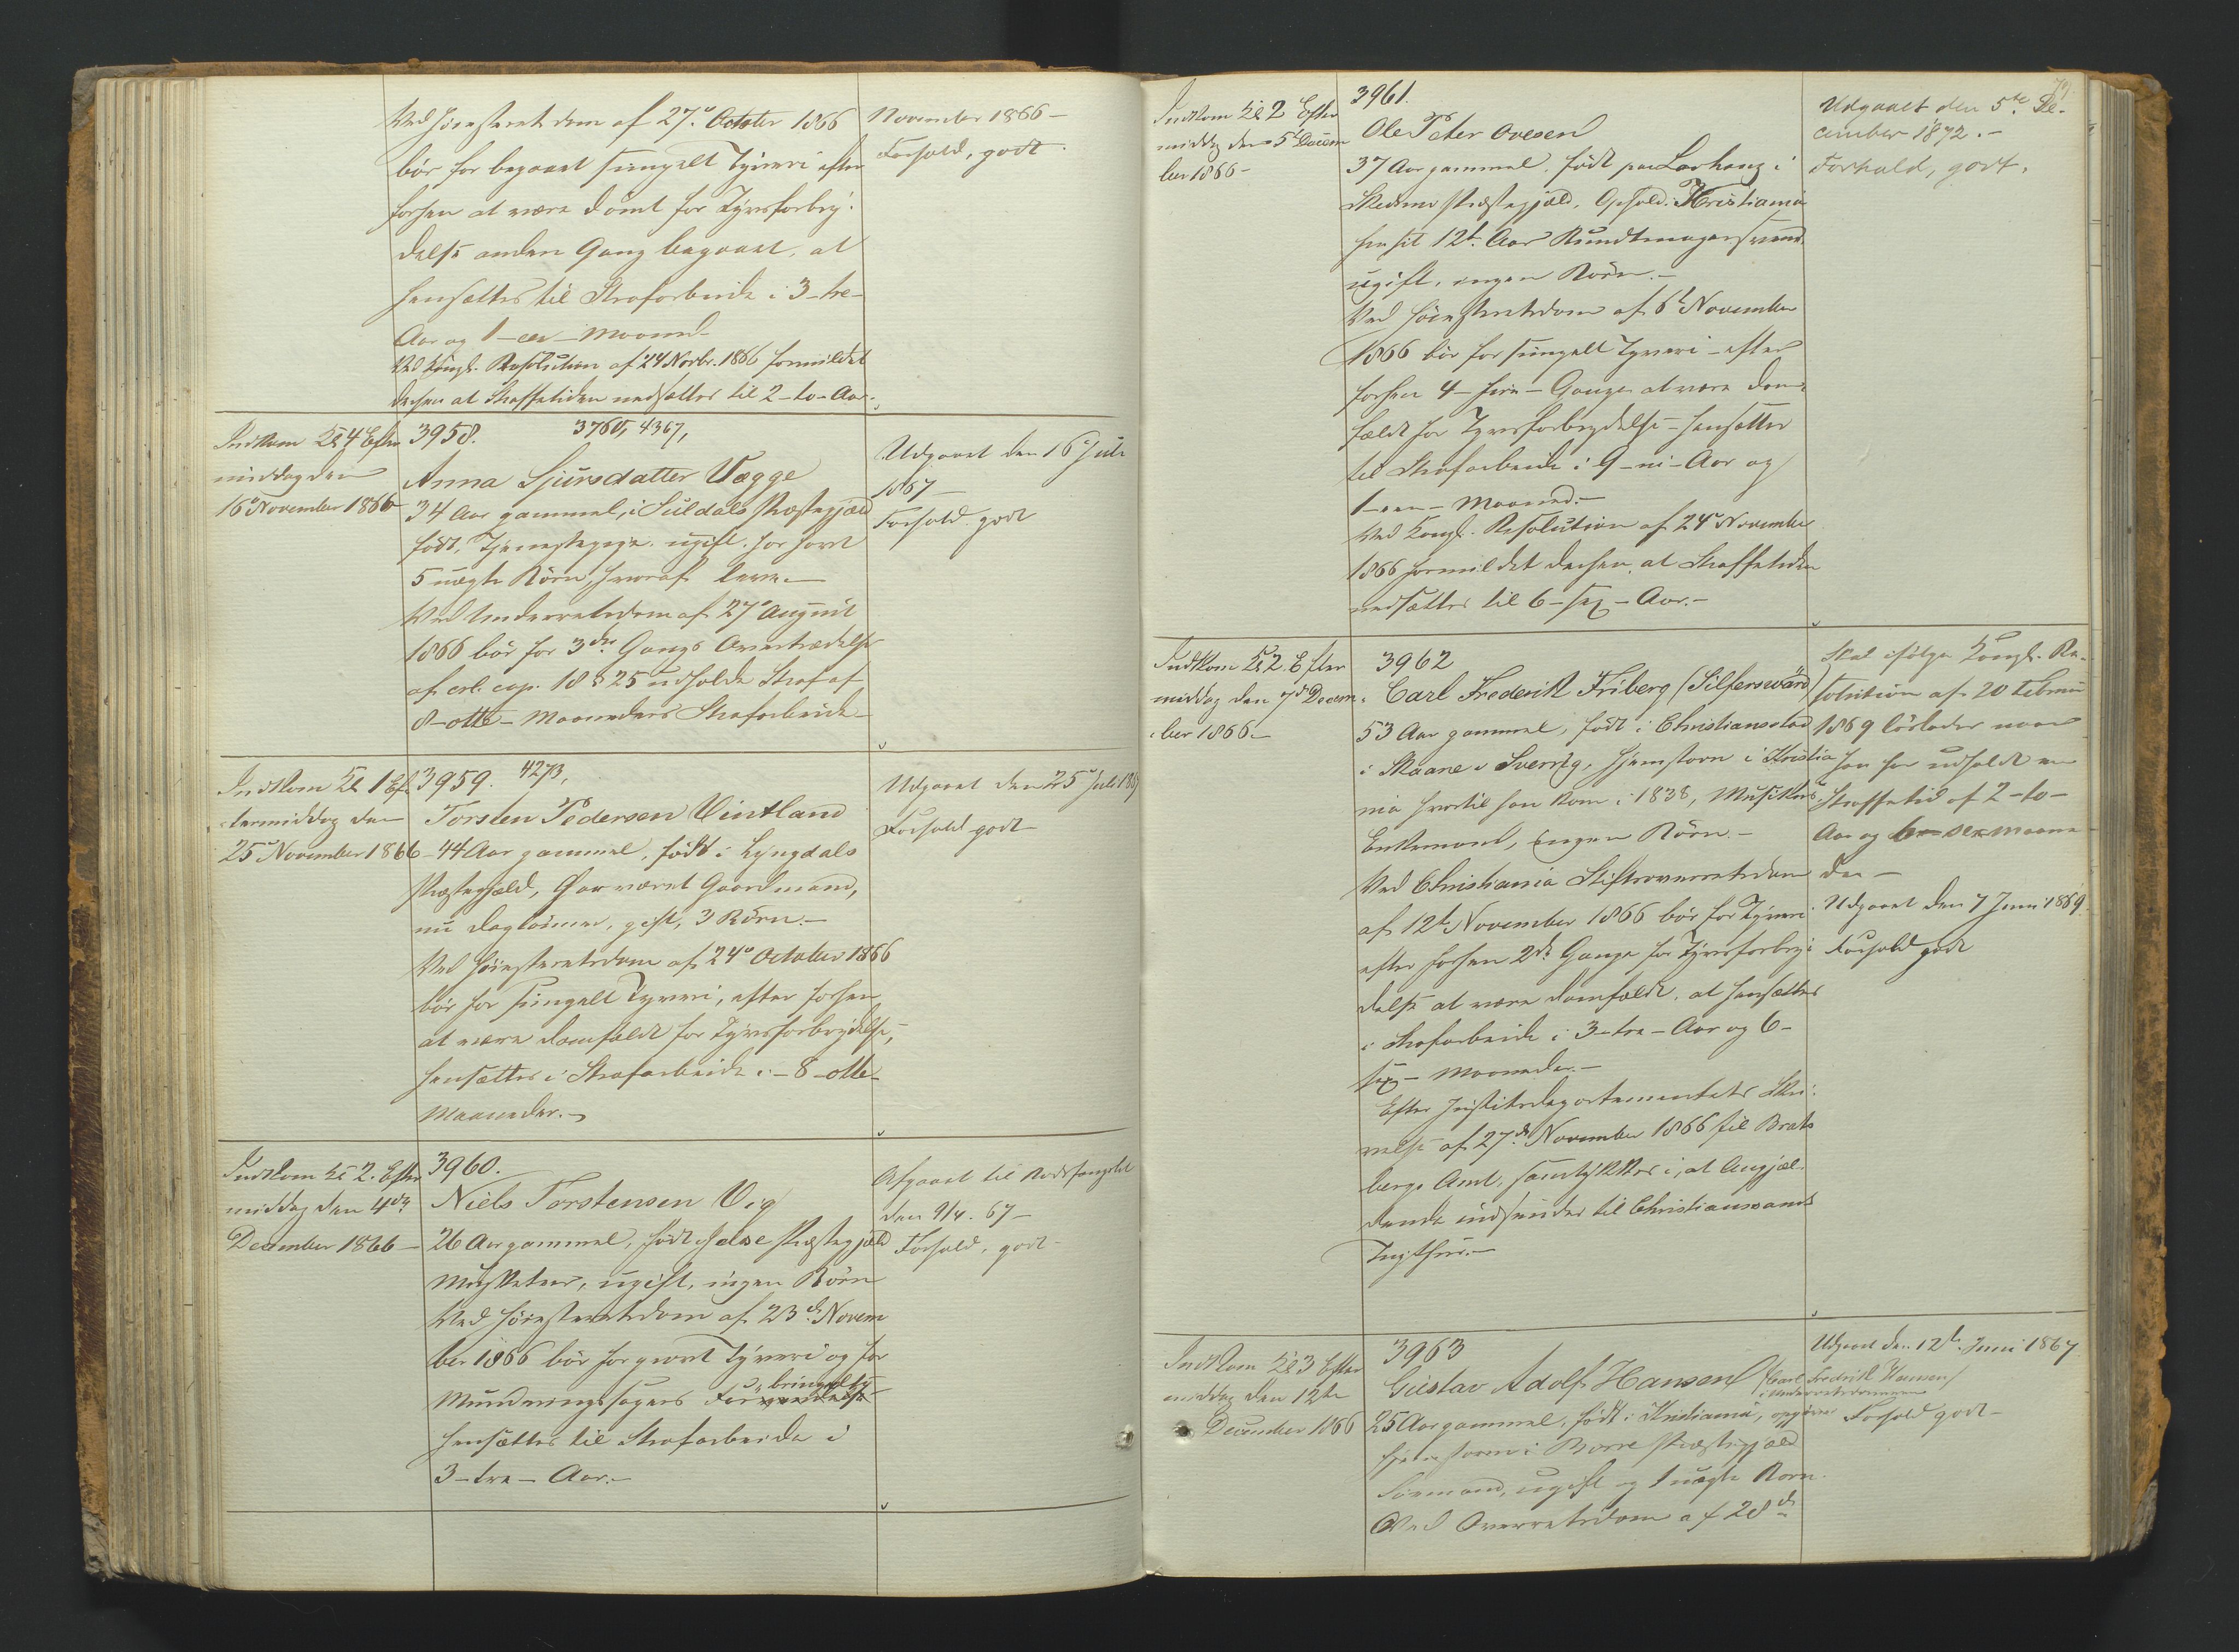 Ved Høiesterets dom af 27de October 1866
bør for begaaet simpelt Tyveri efter
forhen at være dømt for Tyvsforbry-
delse anden Gang begaaet, at
hensættes til Strafarbeide i 3-tre-
Aar og 1-een-Maaned-
Ved Kongl. Resolution af 24 Novbr. 1866 formildet
derhen at Straffetiden nedsættes til 2-to-Aar.
November 1866-
Forhold, godt.
Indkom Kl 4 Efter
middag den
16de November 1866
3958. 3760, 4367,
Anna Sjursdatter Vægge
34 Aar gammel, i Suldals Præstegjæld
født, Tjenestepige. ugift. har havt
5 uægte Børn, hvoraf leve-
Ved Underretsdom af 27de August
1866 bør for 3die Gangs Overtrædelse
af crl. cap. 18 § 25 udholde Straf af
8-otte-Maaneders Strafarbeide-
Udgaaet den 16 Juli
1867-
Forhold godt
Indkom Kl 1 Ef-
termiddag den
25de November 1866
3959. 4273,
Torsten Pedersen Vintland
-44 Aar gammel, født i Lyngdals
Præstegjæld, har været Gaardmand,
nu Dagleier, gift, 3 Børn.-
Ved Høiesteretsdom af 24de October 1866
bør for simpelt Tyveri, efter forhen
at være domfældt for Tyvsforbrydelse,
hensættes i Strafarbeide i -8-otte-
Maaneder.-
Udgaaet den 25de Juli 1867
Forhold godt
Indkom Kl 2. Efter
middag den 4de
December 1866-
3960.
Niels Torstensen Vig
26 Aar gammel, født i Præstegjæld
Musketeer, ugift, ingen Børn
Ved Høiesteretsdom af 23de Novem
ber 1866 bør for grovt Tyveri og for
Mundringssagers Forbringelse
hensættes til Strafarbeide i
3-tre-Aar.-
Afgaaet til Bodsfængslet
den 9/4. 67-
Forhold, godt-
Indkom Kl 2 Efter
middag den 5te Decem
ber 1866-
3961.
Ole Peter Ovesen
37 Aar gammel. født paa i
Skedsmo Præstegjæld. Ophold: Kristiania
fra sit 12te Aar Bundtmagersvend.
ugift, ingen Børn.-
Ved Høiesteretsdom af 6te November
1866 bør for simpelt Tyveri-efter
forhen 4-fire-Gange at være dom-
fældt for Tyvsforbrydelse-hensættes
til Strafarbeide i 9-ni-Aar og
1-een-Maaned.-
Ved Kongl. Resolution af 24de November
1866 formildet derhen, at Straffetiden
nedsættes til 6-sex-Aar.-
Udgaaet den 5te De-
cember 1872.-
Forhold, godt.
Indkom Kl 2. Efter
middag den 7de Decem-
ber 1866.-
3962
Carl Frederik Friberg (Silferswärd)
53 Aar gammel, født i Christiansstad
i Skaane i Sverrig, Hjemstavn i Kristia
nia hvortil han kom i 1838, Musikus
Enkemand, Ingen Børn.-
Ved Christiania Stiftsoverretsdom
af 12te November 1866 bør for Tyveri
efter forhen 2de Gange for Tyvsforbry-
delse at være domfældt, at hensættes
i Strafarbeide i 3-tre-Aar og 6-
sex-Maaneder.-
Efter Justitsdepartementets Skri-
velse af 27de November 1866 til Brats
bergs Amt, samtykkes i, at Angjæl-
dende indsendes til Christianssands
Tugthus.-
Skal ifølge Kongl. Re-
solution af 20 Februar
1869 løslades naar
han har udholdt en
Straffetid af 2-to-
Aar og 6-sex Maane
der-
Udgaaet den 7 Juni 1869.
Forhold godt
Indkom Kl 3 Efter
middag den 12te
December 1866
3963
Gustav Adolf Hansen (Carl Fredrik Hansen)
i Underretsdommen
25 Aar gammel, født i Kristiania, opgiver
Hjemstavn i Borre Præstegjæld
Sømand, ugift og 1 uægte Barn.
Ved Overretsdom af 28de
Udgaaet den 12te Juni 1867
Forhold godt-